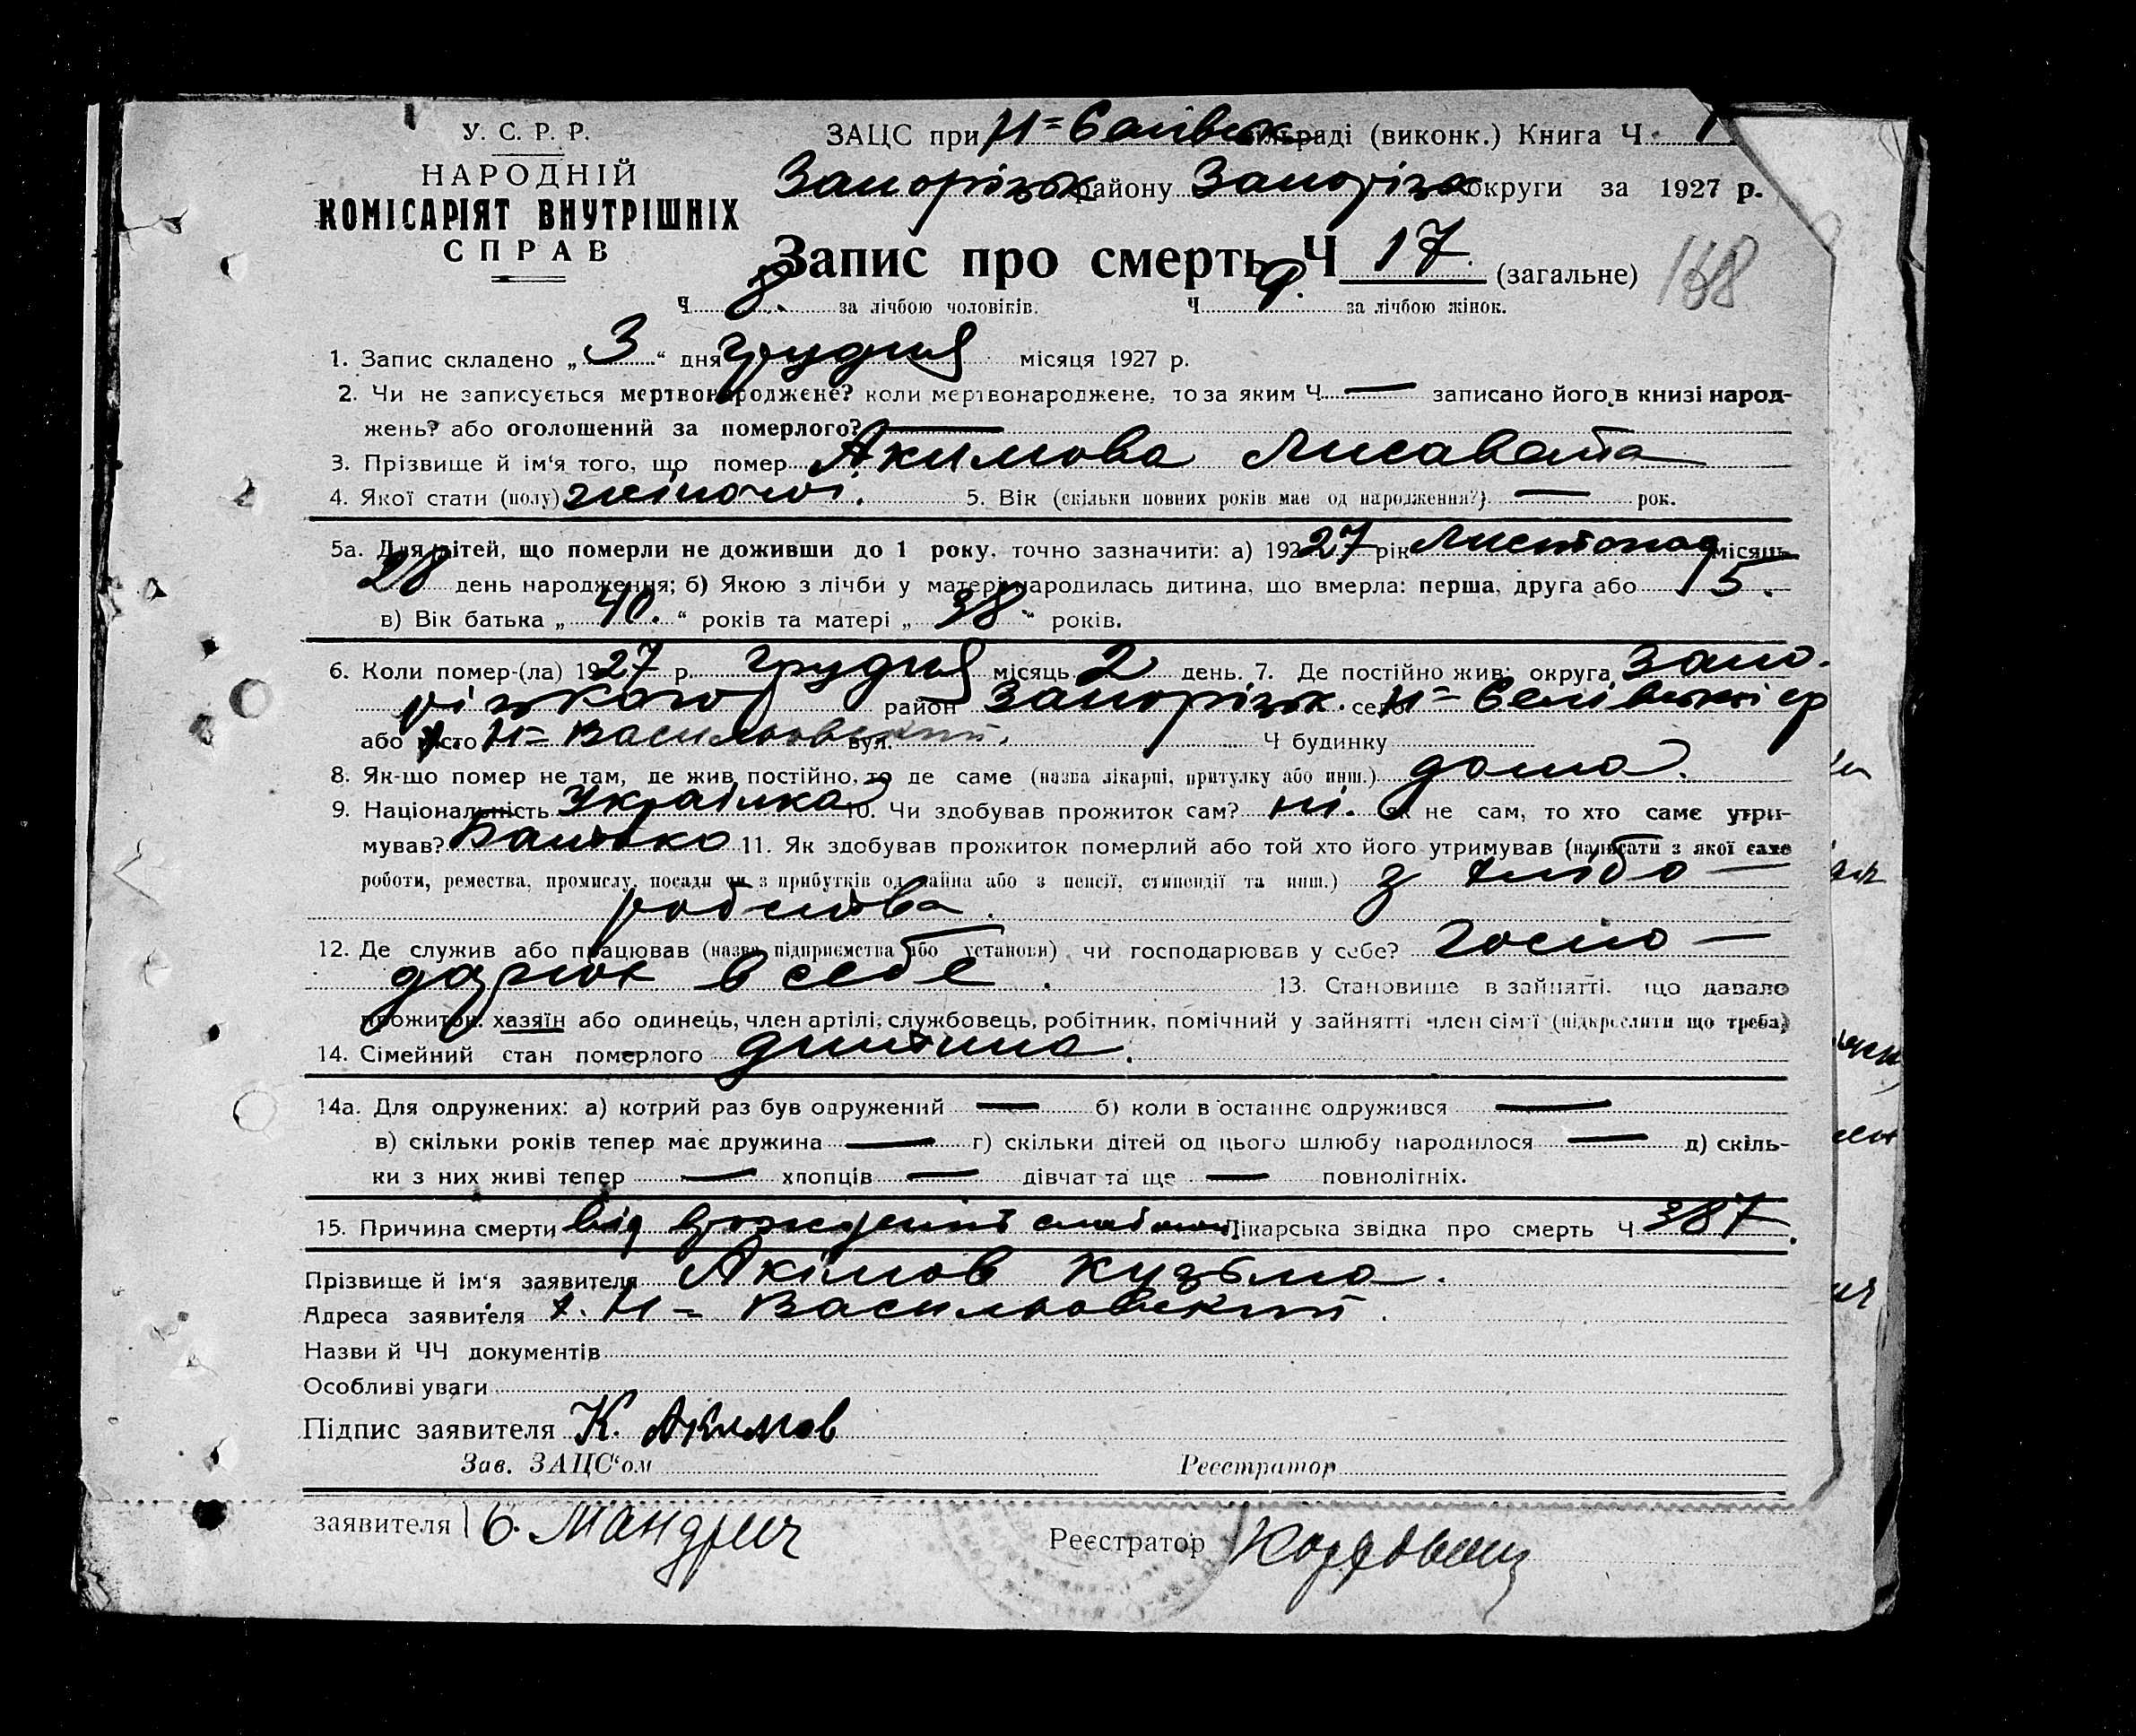 У. С. Р. Р.
НАРОДНІЙ
КОМІСАРІЯТ ВНУТРІШНІХ
СПРАВ
ЗАЦС при Н= сільраді (виконк.) Книга Ч. 1
Запорізьк району Запоріз округи за 1927 р.
Запис про смерть Ч 17. (загальне)
168
Ч 8. за лічбою чоловіків. Ч 9. за лічбою жінок.
1. Запис складено „ 3 “ дня грудня місяця 1927 р.
2. Чи не записується мертвонароджене? коли мертвонароджене, то за яким Ч — записано його в книзі народ-
жень? або оголошений за померлого? —
3. Прізвище й ім‘я того, що помер Акимова Лисавета
4. Якої стати (полу) жіночої. 5. Вік (скільки повних років має од народження?) — рок.
5а. Для дітей, що померли не доживши до 1 року, точно зазначити: а) 192 27 рік Листопад місяць
28 день народження; б) Якою з лічби у матері народилась дитина, що вмерла: перша, друга або 5.
в) Вік батька „ 40. “ років та матері „ 38 “ років.
6. Коли помер-(ла) 19 27 р. грудня місяць 2 день. 7. Де постійно жив: округа Запо-
різького район Запорізьк. село Н=
або місто Н= Васильовский. вул. Ч будинку
8. Як-що помер не там, де жив постійно, то де саме (назва лікарні, притулку або инш.) дома.
9. Національність Українка 10. Чи здобував прожиток сам? ні. Як не сам, то хто саме утри-
мував? Батько 11. Як здобував прожиток померлий або той хто його утримував (написати з якої саме
роботи, ремества, промислу, посади чи з прибутків од майна або з пенсії, стипендії та инш.) з хлібо —
робства.
12. Де служив або працював (назва підприємства або установи) чи господарював у себе? госпо —
дарює в себе. 13. Становище в зайнятті, що давало
прожиток: хазяїн або одинець, член артілі, службовець, робітник, помічний у зайнятті член сім‘ї (підкреслити що треба)
14. Сімейний стан померлого дитина.
14а. Для одружених: а) котрий раз був одружений — б) коли в останнє одружився —
в) скільки років тепер має дружина — г) скільки дітей од цього шлюбу народилося — д) скіль-
ки з них живі тепер — хлопців — дівчат та ще — повнолітніх.
15. Причина смерти від Лікарська звідка про смерть Ч 387.
Прізвище й ім‘я заявителя Акімов Кузьма.
Адреса заявителя х. Н= Васильовский.
Назви й ЧЧ документів
Особливі уваги
Підпис заявителя К. Акимов
Зав. ЗАЦС‘ом Реєстратор
заявителя Реєстратор